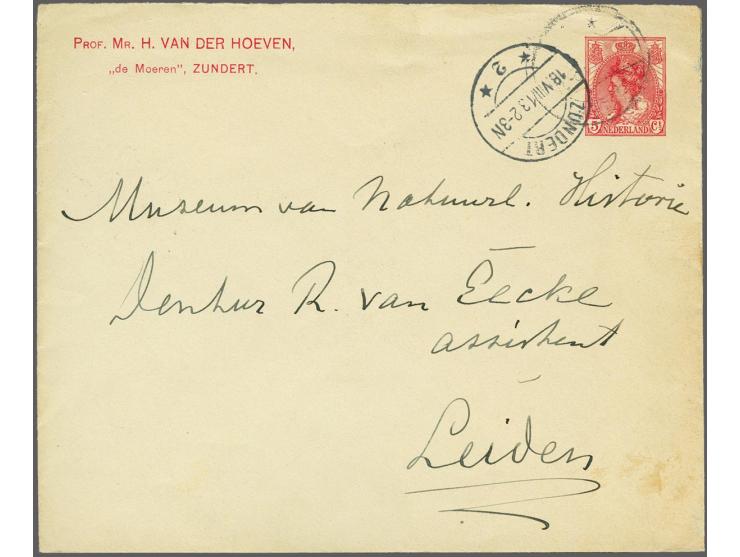 PROF. MR. H. VAN DER HOEVEN,
„de Moeren”, ZUNDERT.
ZUNDERT
18.VIII.13.2-3N
★ 2 ★
5 NEDERLAND Ct
Museum van Natuurl. Historie
R. van Eecke
assistent
Leiden